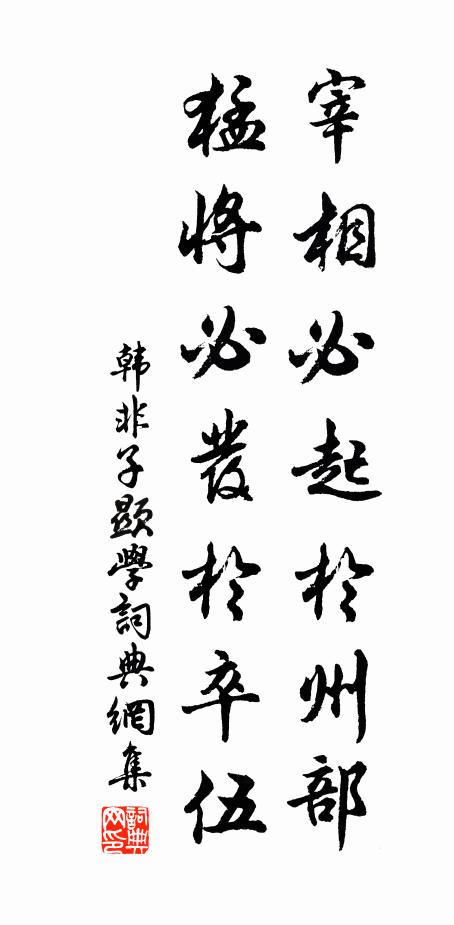 宰相必起於州部
猛將必發於卒伍
韩非子顯學詞典網集
詞典网印